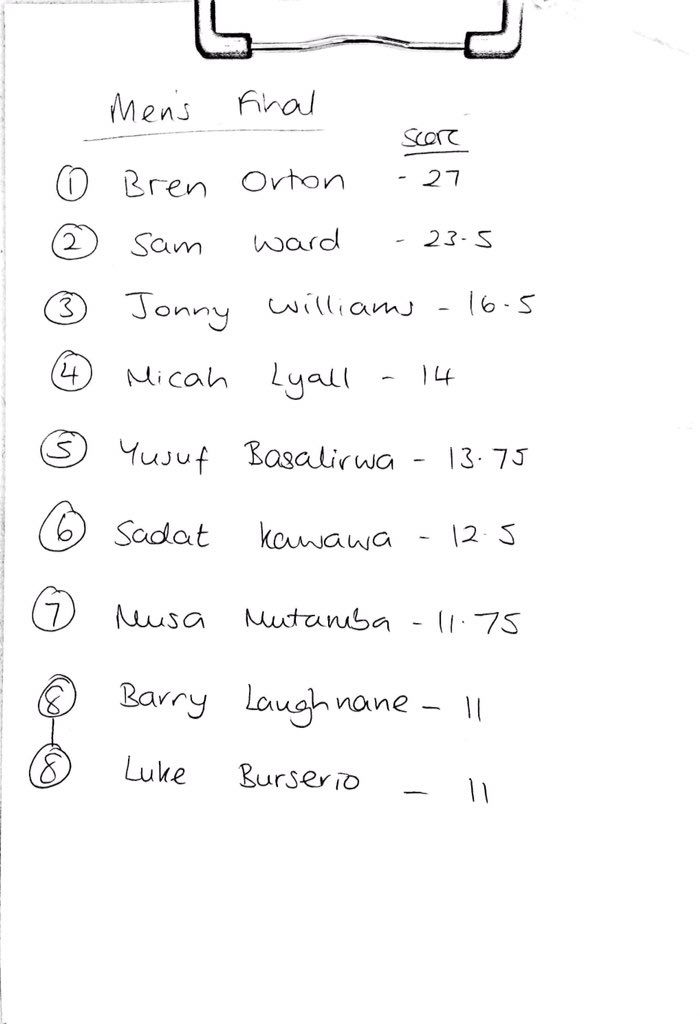 Men's Final
Score
① Bren Orton - 27
② Sam Ward - 23.5
③ Jonny Williams - 16.5
④ Micah Lyall - 14
⑤ Yusuf Basalirwa - 13.75
⑥ Sadat Kawawa - 12.5
⑦ Musa Mutamba - 11.75
⑧ Barry Laughnane - 11
⑧ Luke Burserio - 11